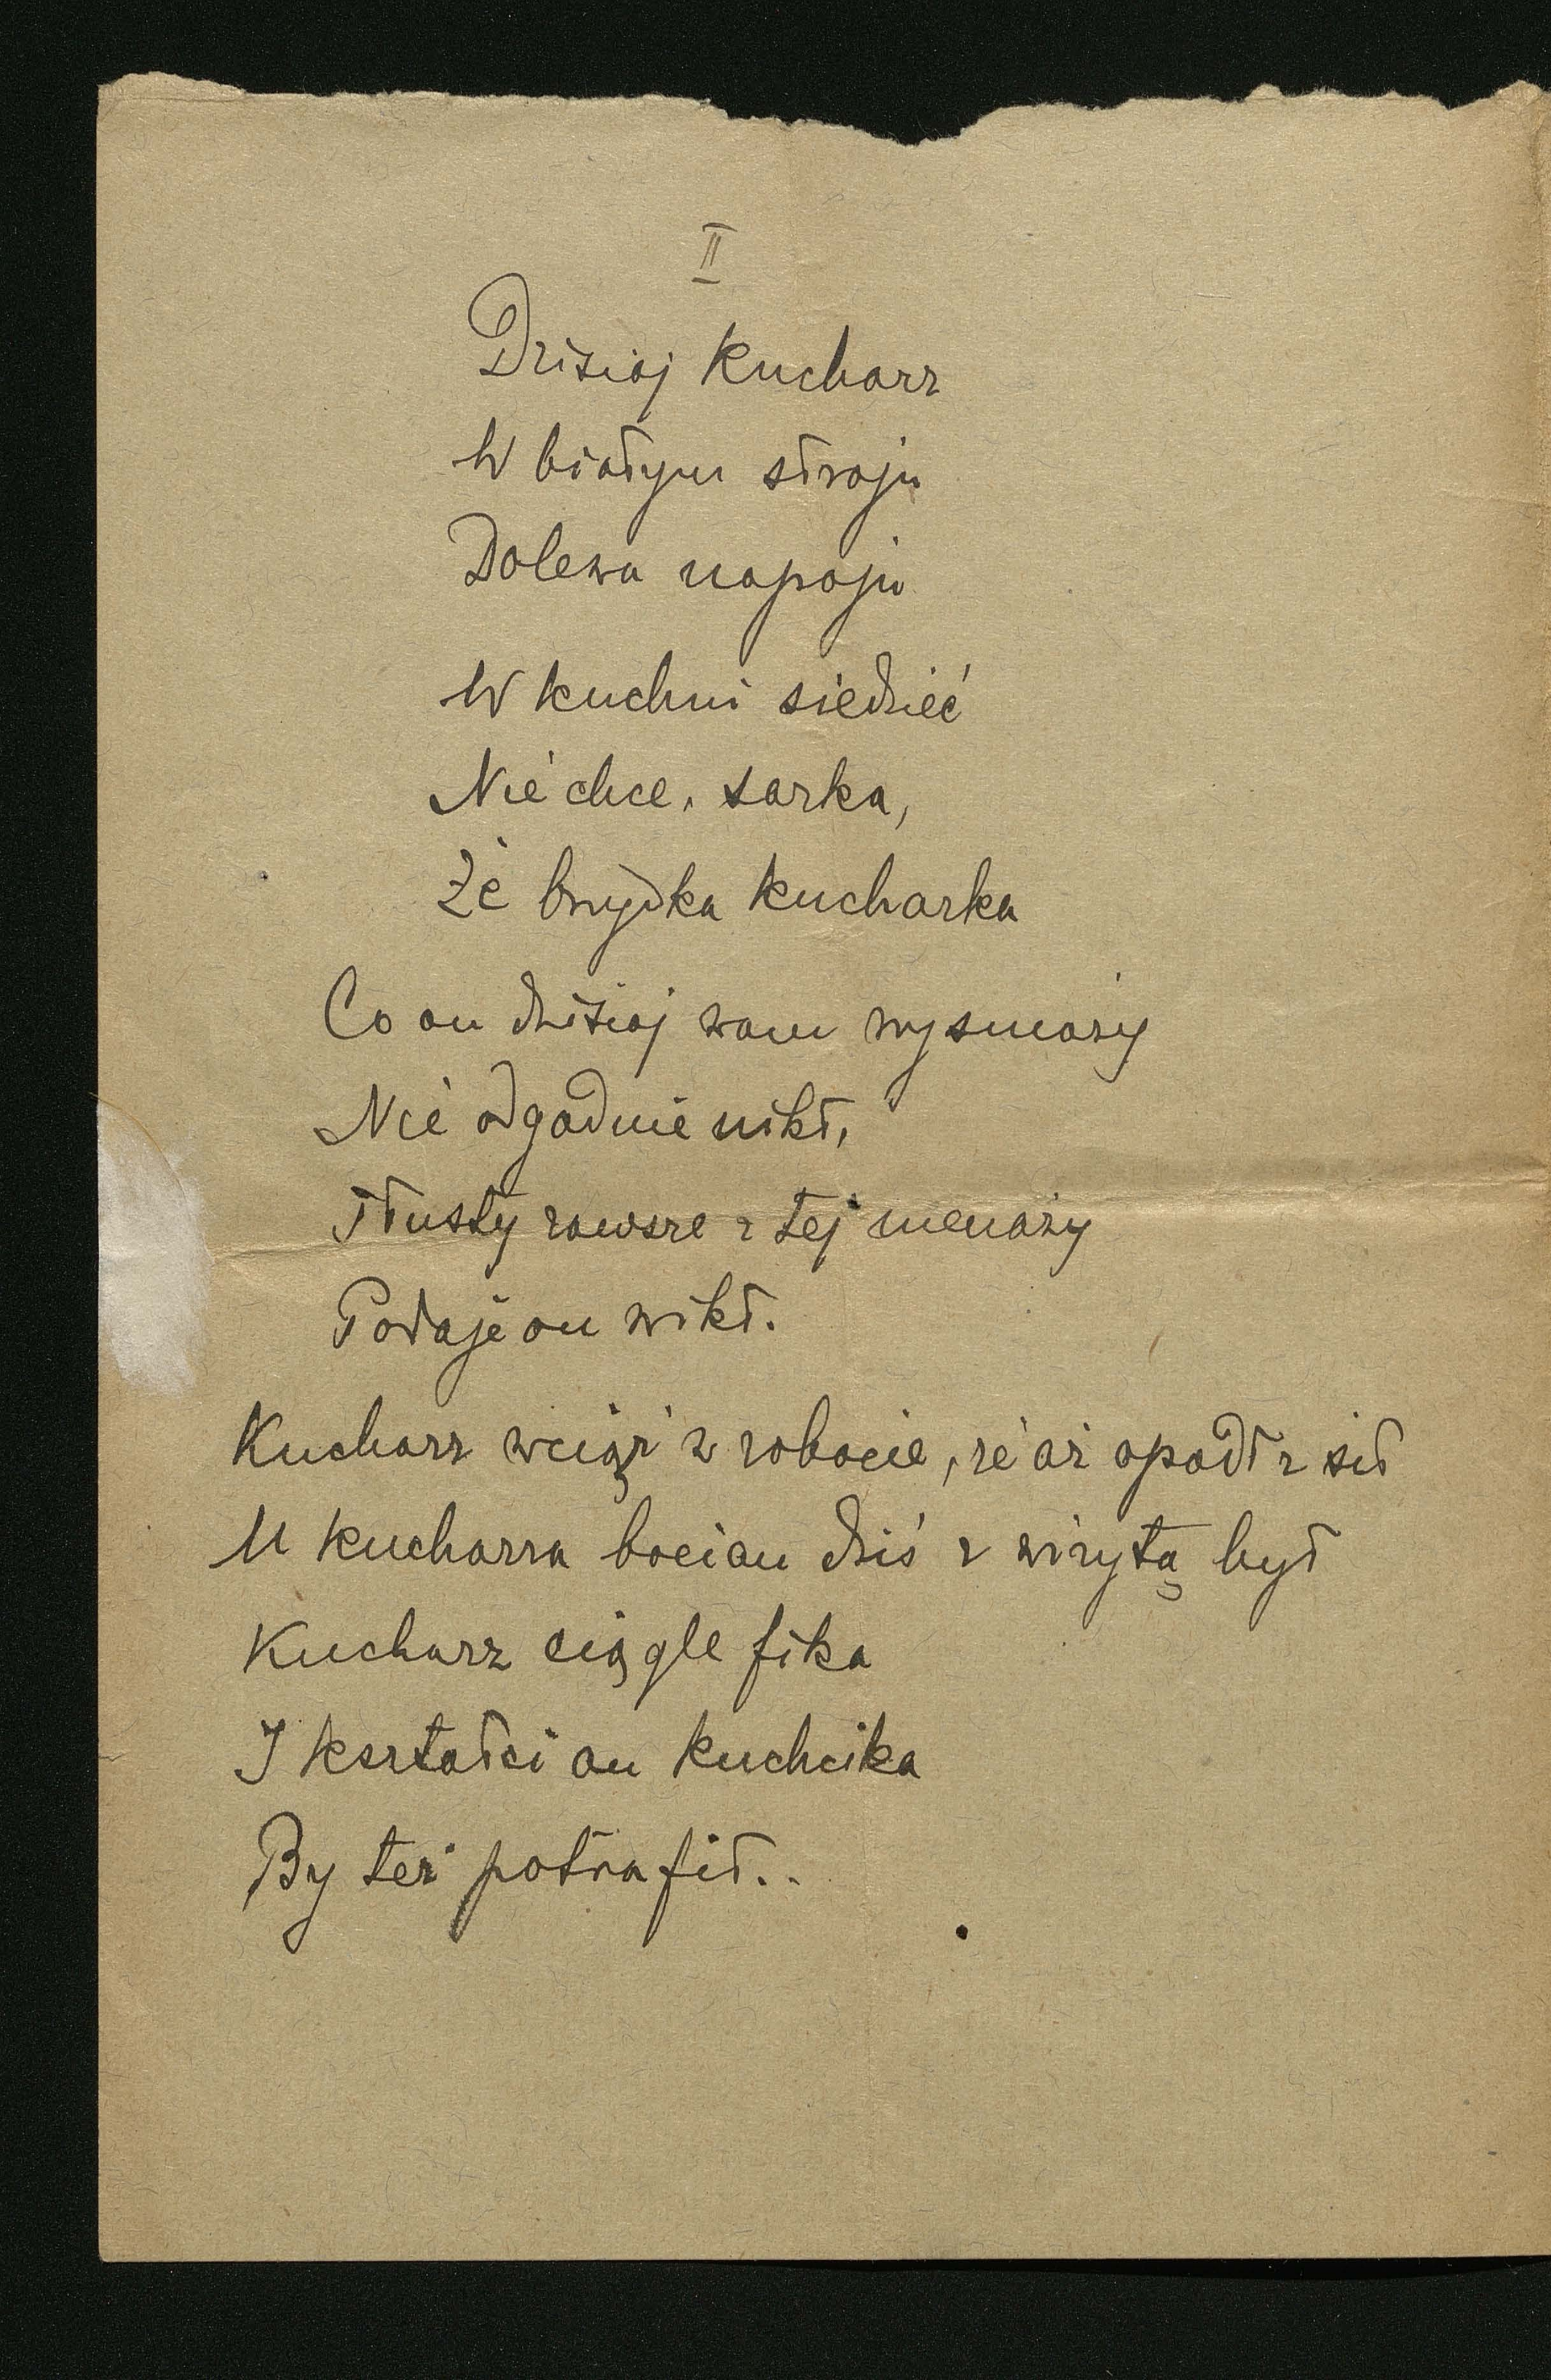 II
Dzisiaj kucharz
W białym stroju
Dolewa napoju
W kuchni siedzieć
Nie chce, sarka,
Że brzydka kucharka
Co on dzisiaj wam wysmaży
Nie odgadnie nikt,
Tłusty zawsze z tej menaży
Podaje on wikt.
Kucharz wciąż w robocie, że aż opadł z sił
U kucharza bocian dziś z wizytą był
Kucharz ciągle fika
I kształci on kuchcika
By też potrafił..